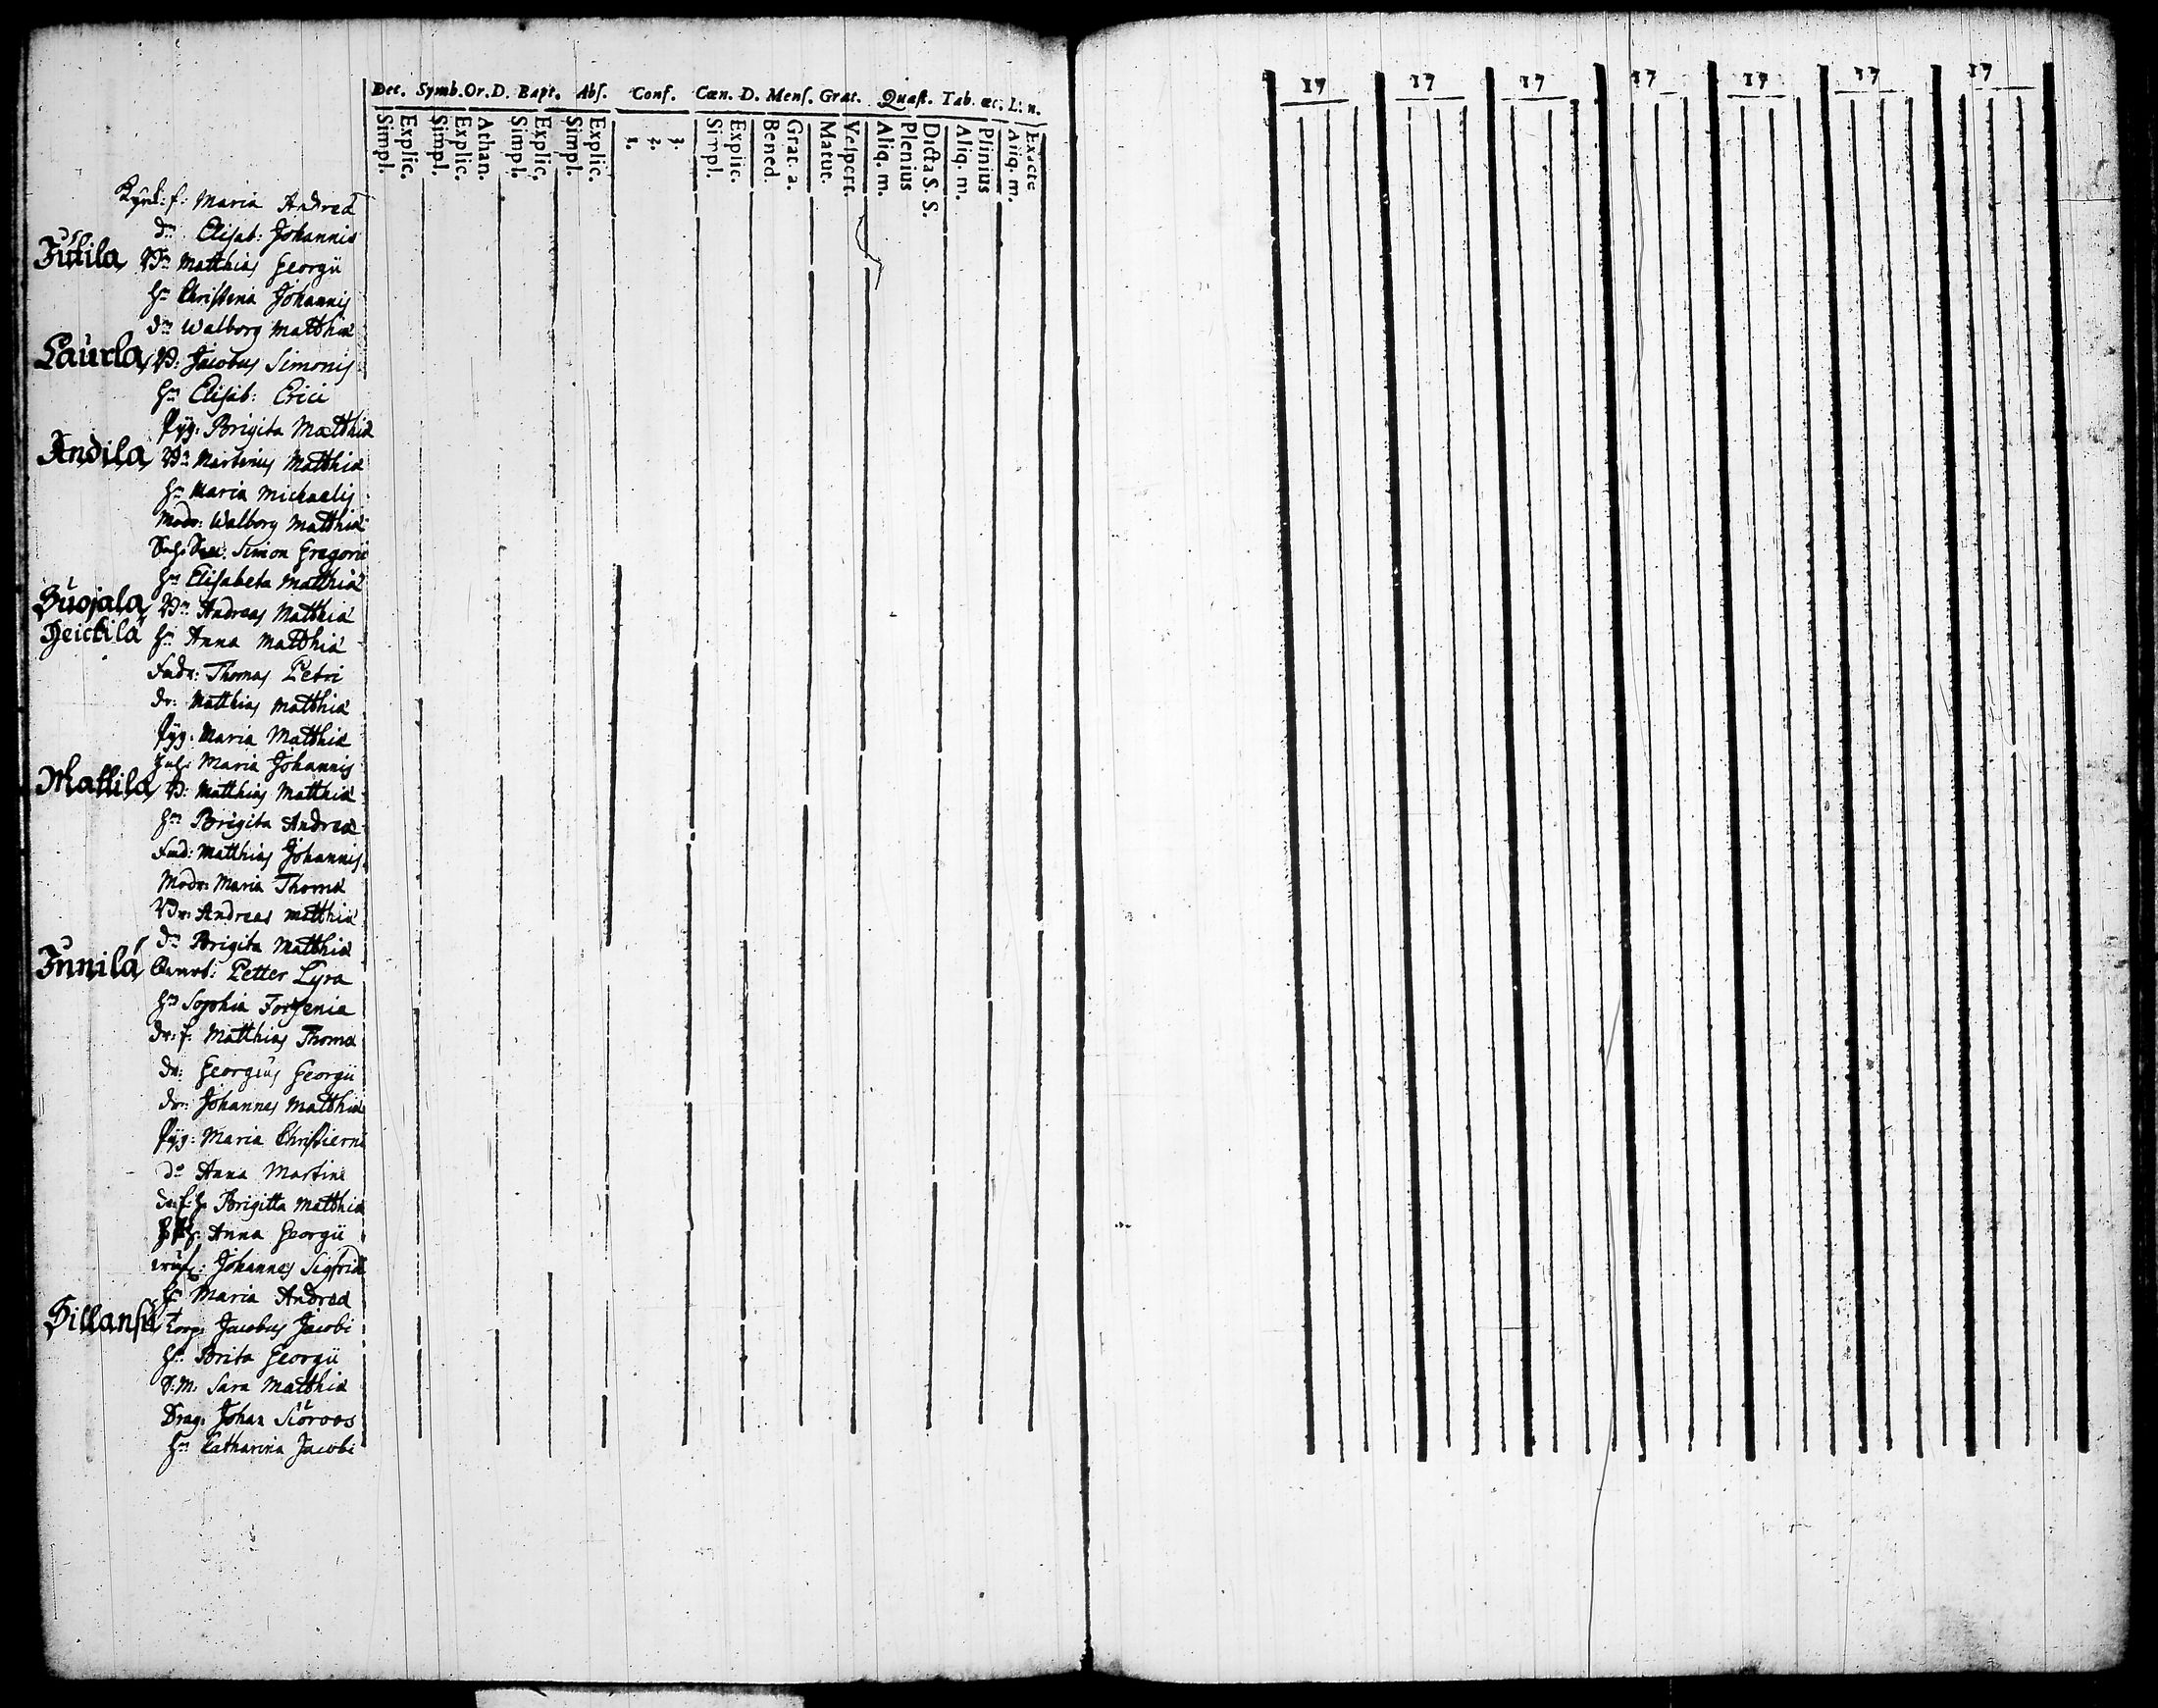 Dec. Symb. Or. D. Bapt. Abs. Conf. Cœn. D. Mens. Grat. Quæst. Tab. œc. L: n.
Simpl. Explic. Simpl. Explic. Athan. Simpl. Explic. Simpl. Explic. 1. 2. 3. Simpl. Explic. Bened. Grat. a. Matut. Vespert. Aliq. m. Plenius Dicta S. S. Aliq. m. Plinius Aliq. m. Exacte
17 17 17 17 17 17 17
f: Maria Andreæ
Elisab: Johannis
Matthias Georgii
Hu Christina Johannis
Walborg Matthiæ
Laurla Jacobus Simonis
Hu Elisab: Erici
Pyg: Brigita Matthiæ
Andila Martinus Matthiæ
Hu Maria Michaelis
Modr: Walborg Matthiæ
Simon Gregorii
Hu Elisabeta Matthiæ
Andreas Matthiæ
Hu Anna Matthiæ
Thomas Petri
dr: Matthias Matthiæ
Pyg: Maria Matthiæ
Maria Johannis
Mattila Matthias Matthiæ
Hu Brigita Andreæ
Matthias Johannis
Modr: Maria Thomæ
Andreas Matthiæ
Brigita Matthiæ
Junnila Petter Lyra
Hu Sophia Forsenia
dr: f: Matthias Thomæ
dr: Georgius Georgii
dr: Johannes Matthiæ
Pyg: Maria Christierni
do Anna Martini
Brigitta Matthiæ
Anna Georgii
Johannes Sigfridi
Hu Maria Andreæ
Torp: Jacobus Jacobi
Hu Brita Georgii
S: M: Sara Matthiæ
Drag: Johan Siöroos
Hu Catharina Jacobi